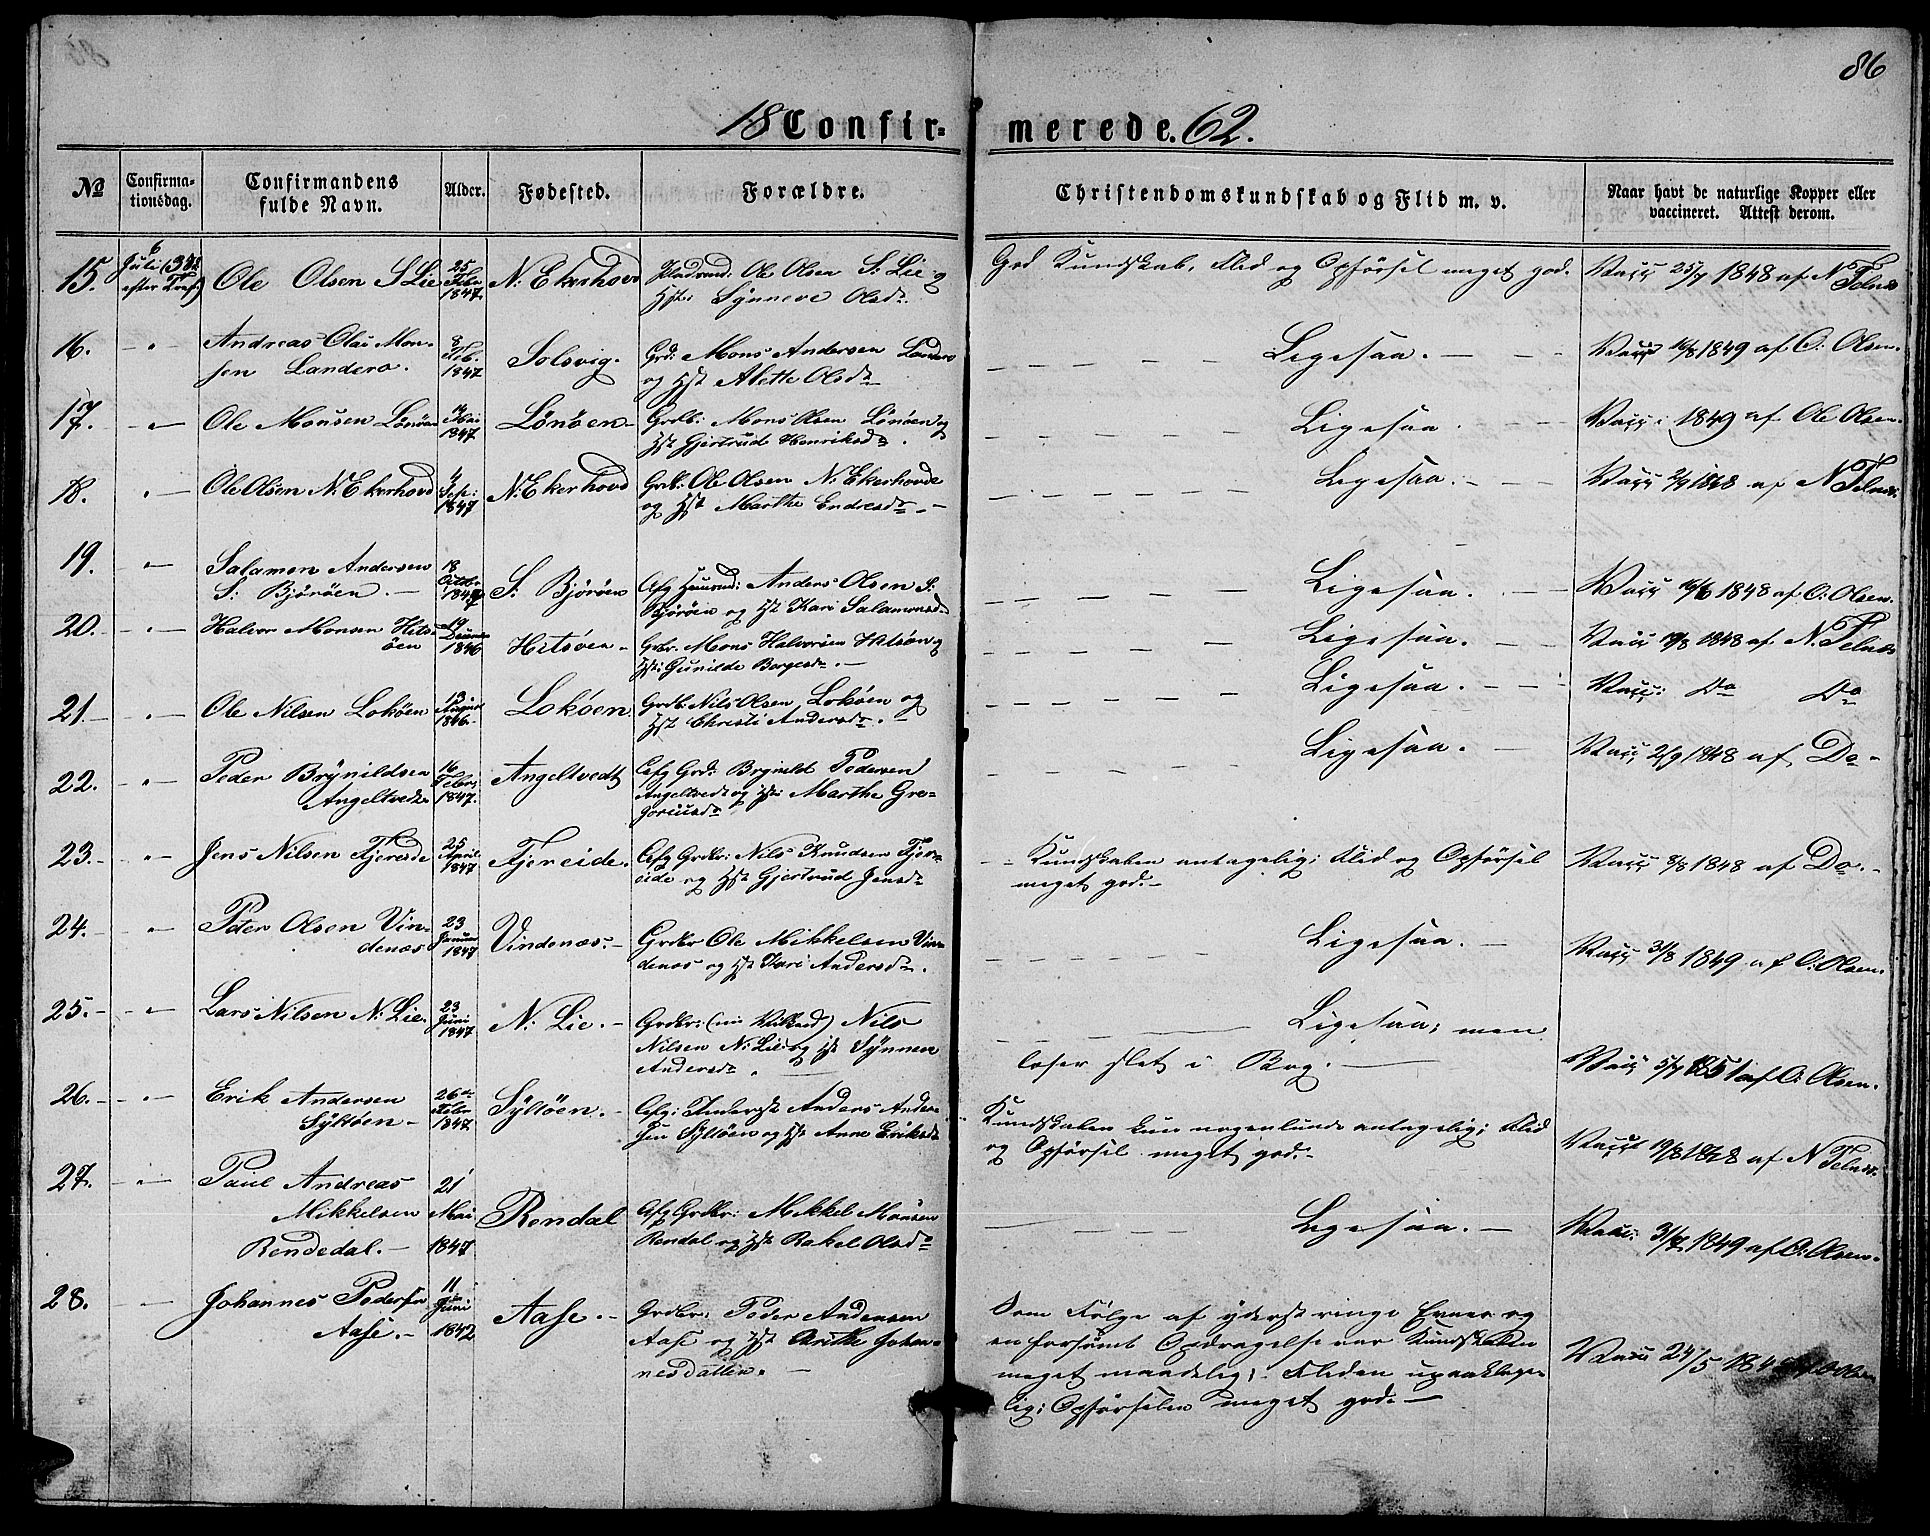 86
18 Confir-
merede. 62.
No
Confirma-
tionsdag.
Confirmandens
fulde Navn.
Alder.
Fødested.
Forældre.
Christendomskundskab og Flid m. v.
Naar havt de naturlige Kopper eller
vaccineret. Attest derom.
15.
6
Juli (3die
efter Tref)
Ole Olsen S Lie
25
Febr
1847.
N: Ekerhovd
Ole Olsen S: Lie og
Hst: Synneve Olsdr
God Kundskab, Flid og Opførsel meget god.
Vacc 25/7 1848 af N Telnæs
16.
Andreas Olai Mon-
sen Landero.
8
Feb.
1847.
Solsvig.
Grd: Mons Andersen Landero
og Hst Alette Olsdr
Ligesaa.
Vacc 16/8 1849 af O: Olsen.
17.
Ole Monsen Lönöen
14
Mai
1847
Lönöen
Grdb: Mons Olsen Lönöen og
Hst Gjertrud Henriksdr.
Ligesaa.
Vacc: 1849 af Ole Olsen.
18.
Ole Olsen N: Ekerhovd
4
Sep:
1847
N: Ekerhovd
Grb: Ole Olsen N: Ekerhovd
og Hst Marthe Endresdr.
Ligesaa.
Vacc 2/9 1848 af N Telnæs.
19.
Salamon Andersen
S: Björöen.
18
Octbr
1847
S. Björöen
Afg Huusmd: Anders Olsen S:
Björöen og Hst Kari Salamonsd.
Ligesaa.
Vacc 16/6 1848 af O: Olsen.
20.
Halvor Monsen Hits-
öen
19
Decem
1846
Hitsöen
Gbr. Mons Halvorsen Hitsön og
Hst: Gunilde Borgesdr.
Ligesaa.
Vacc 19/8 1848 af N. Telnæs
21.
Ole Nilsen Loköen
13
August
1846.
Loköen
Grdb. Nils Olsen Loköen og
Hst Christi Andersdr.
Ligesaa.
Vacc: Do Do
22.
Peder Brynildsen
Angeltvedt
16
Febr.
1847.
Angeltvedt
Afg Grd: Brynild Pedersen
Angeltvedt og Hst: Marthe Gre-
goriusdr
Ligesaa.
Vacc 2/9 1848 af Do
23.
Jens Nilsen Fjereide
25
April
1847
Fjereide.
Afg Grdbr: Nils Knudsen Fjer-
eide og Hst Gjertrud Jensdr
Kundskaben antagelig; Flid og Opførsel
meget god.
Vacc 8/8 1848 af Do.
24.
Peter Olsen Vin-
denæs
23
Januar
1847
Vindenæs.
Grdbr Ole Mikkelsen Vin-
denæs og Hst Kari Andersdr.
Ligesaa.
Vacc 31/8 1849 af O: Olsen.
25.
Lars Nilsen N: Lie.
23
Juni
1847
N: Lie.
Grdbr: Nils
Nilsen N: Lie og Hst Synneve
Andersdr.
Ligesaa; men
læser slet i Bog.
Vacc 5/7 1851 af O: Olsen.
26.
Erik Andersen
Syltöen
26de
Febr
1847
Syltöen.
Afg: Anders Ander-
sen Syltöen og Hst Anne Eriksdr
Kundskaben kun nogenlunde antagelig; Flid
og Opførsel meget god.
Vacc 19/8 1848 af N Telnæs.
27.
Paul Andreas
Mikkelsen
Rendedal.
21
Mai
1847
Rendal
Afg Grdbr: Mikkel Monsen
Rendal og Hst Rakel Olsdr
Ligesaa.
Vacc: 31/7 1849 af O: Olsen.
28.
Johannes Pedersen
Aase.
11
Juni
1842
Aase.
Grdbr: Peder Andersen
Aase og Hst Brithe Johan-
nesdatter.
Som Følge af yderst ringe Evner og
en forsømt Opdragelse var Kundskaben
meget maadelig; Fliden upaaklage-
lig; Opførselen meget god.
Vacc 24/5 O Olsen